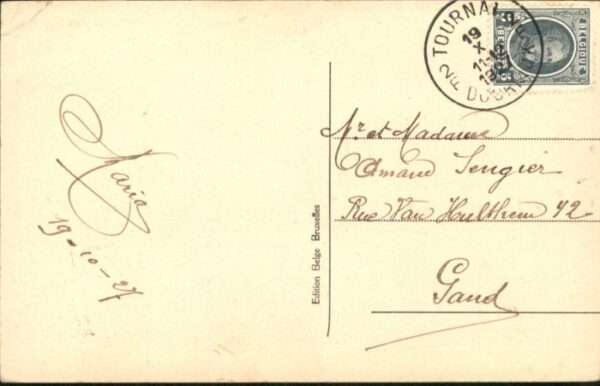 TOURNAI
19
X
DOORNIK
BELGIQUE
Mr et Madame
Amand Sengier
Rue Van Hulthem 42
Gand
Maria
19-10-27
Edition Belge Bruxelles